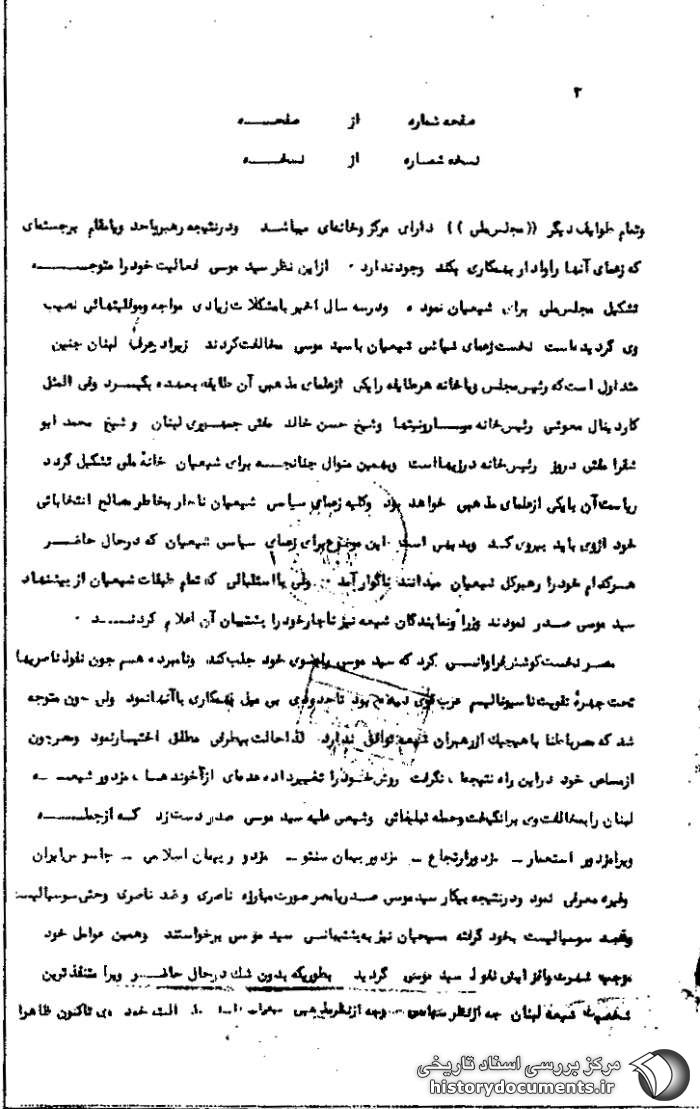 ۲
صفحه شماره از صفحـــــه
نسخه شماره از نسخــــه
وتمام طوایف دیگر ((مجلس ملی)) دارای مرکز وخانه‌ای میباشند ودرنتیجه رهبرواحد ویامقام برجسته‌ای
که زعمای آنها راوادار بهمکاری بکند وجود ندارد ۰ ازاین نظر سید موسی فعالیت خود را متوجـــــه
تشکیل مجلس ملی برای شیعیان نموده ودرسه سال اخیر بامشکلات زیادی مواجه وموفقیتهائی نصیب
وی گردیده است نخست زعمای سیاسی شیعیان باسید موسی مخالفت کردند زیرادرعرف لبنان چنین
متداول است که رئیس مجلس ویاخانه هرطایفه رایکی ازعلمای مذهبی آن طایفه بعهده بگیـرد وفی المثل
کاردینال معوشی رئیس خانه مـــارونیتها وشیخ حسن خالد مفتی جمهـوری لبنان و شیخ محمد ابو
شقرا مفتی دروز رئیس خانه درزیهااست وبهمین منوال چنانچـــه برای شیعیان خانهٔ ملی تشکیل گردد
ریاست آن بایکی ازعلمای مذهبی خواهد بود وکلیه زعمای سیاسی شیعیان ناچار بخاطر مصالح انتخاباتی
خود ازوی باید پیروی کنند وبدیهی است این موضوع برای زعمای سیاسی شیعیان که درحال حاضـــر
هـرکدام خود را رهبرکل شیعیان میدانند ناگوار آمد ولی بااستقبالی که تمام طبقات شیعیان از پیشنهاد
سید موسی صدر نمودند وزرأ ونمایندگان شیعه نیز ناچار خود را پشتیبان آن اعلام کردنـــد ۰
مصـر نخست کوشش فراوانـی کرد که سید موسی را بسوی خود جلب کند ونامبرده هـم چون نفوذ ناصریها
تحت چهرهٔ تقویت ناسیونالیسم عرب قوی بود تاحدودی بی میل بهمکاری باآنهانمود ولی چون متوجه
شد که مصرباطنا باهیچیک ازرهبران شیعه توافق ندارد لذاحالت بیطرفی مطلق اختیـارنمود ومصرچون
ازمساعی خود دراین راه نتیجه‌ای نگرفت روش خـود را تغییرداده عده‌ای ازآخوندهـا ، مزدور شیعـــه
لبنان رابمخالفت وی برانگیخت وحمله تبلیغاتی وشیعی علیه سید موسی صدر دست زد کـه ازجملـــه
ویرامزدور استعمار ــ مزدورارتجاع ــ مزدورپیمان سنتو ــ مزدور پیمان اسلامی ــ جاسوس ایران
وغیره معرفی نمود ودرنتیجه پیکار سید موسی صـدربامصر صورت مبارزه ناصری وضد ناصری وحتی سوسیالیست
سوسیالیست بخود گرفته مسیحیان نیز به پشتیبانـی سید موسی برخواستند وهمین عوامل خود
موجب شهرت وافزایش نفوذ سید موسی گردید بطوریکه بدون شک درحال حاضـر ویرا متنفذترین
شخصیت شیعه لبنان چه ازنظر سیاسی وچه ازنظرمذهبی البته خود وی تاکنون ظاهرا
مرکز بررسی اسناد تاریخی
historydocuments.ir